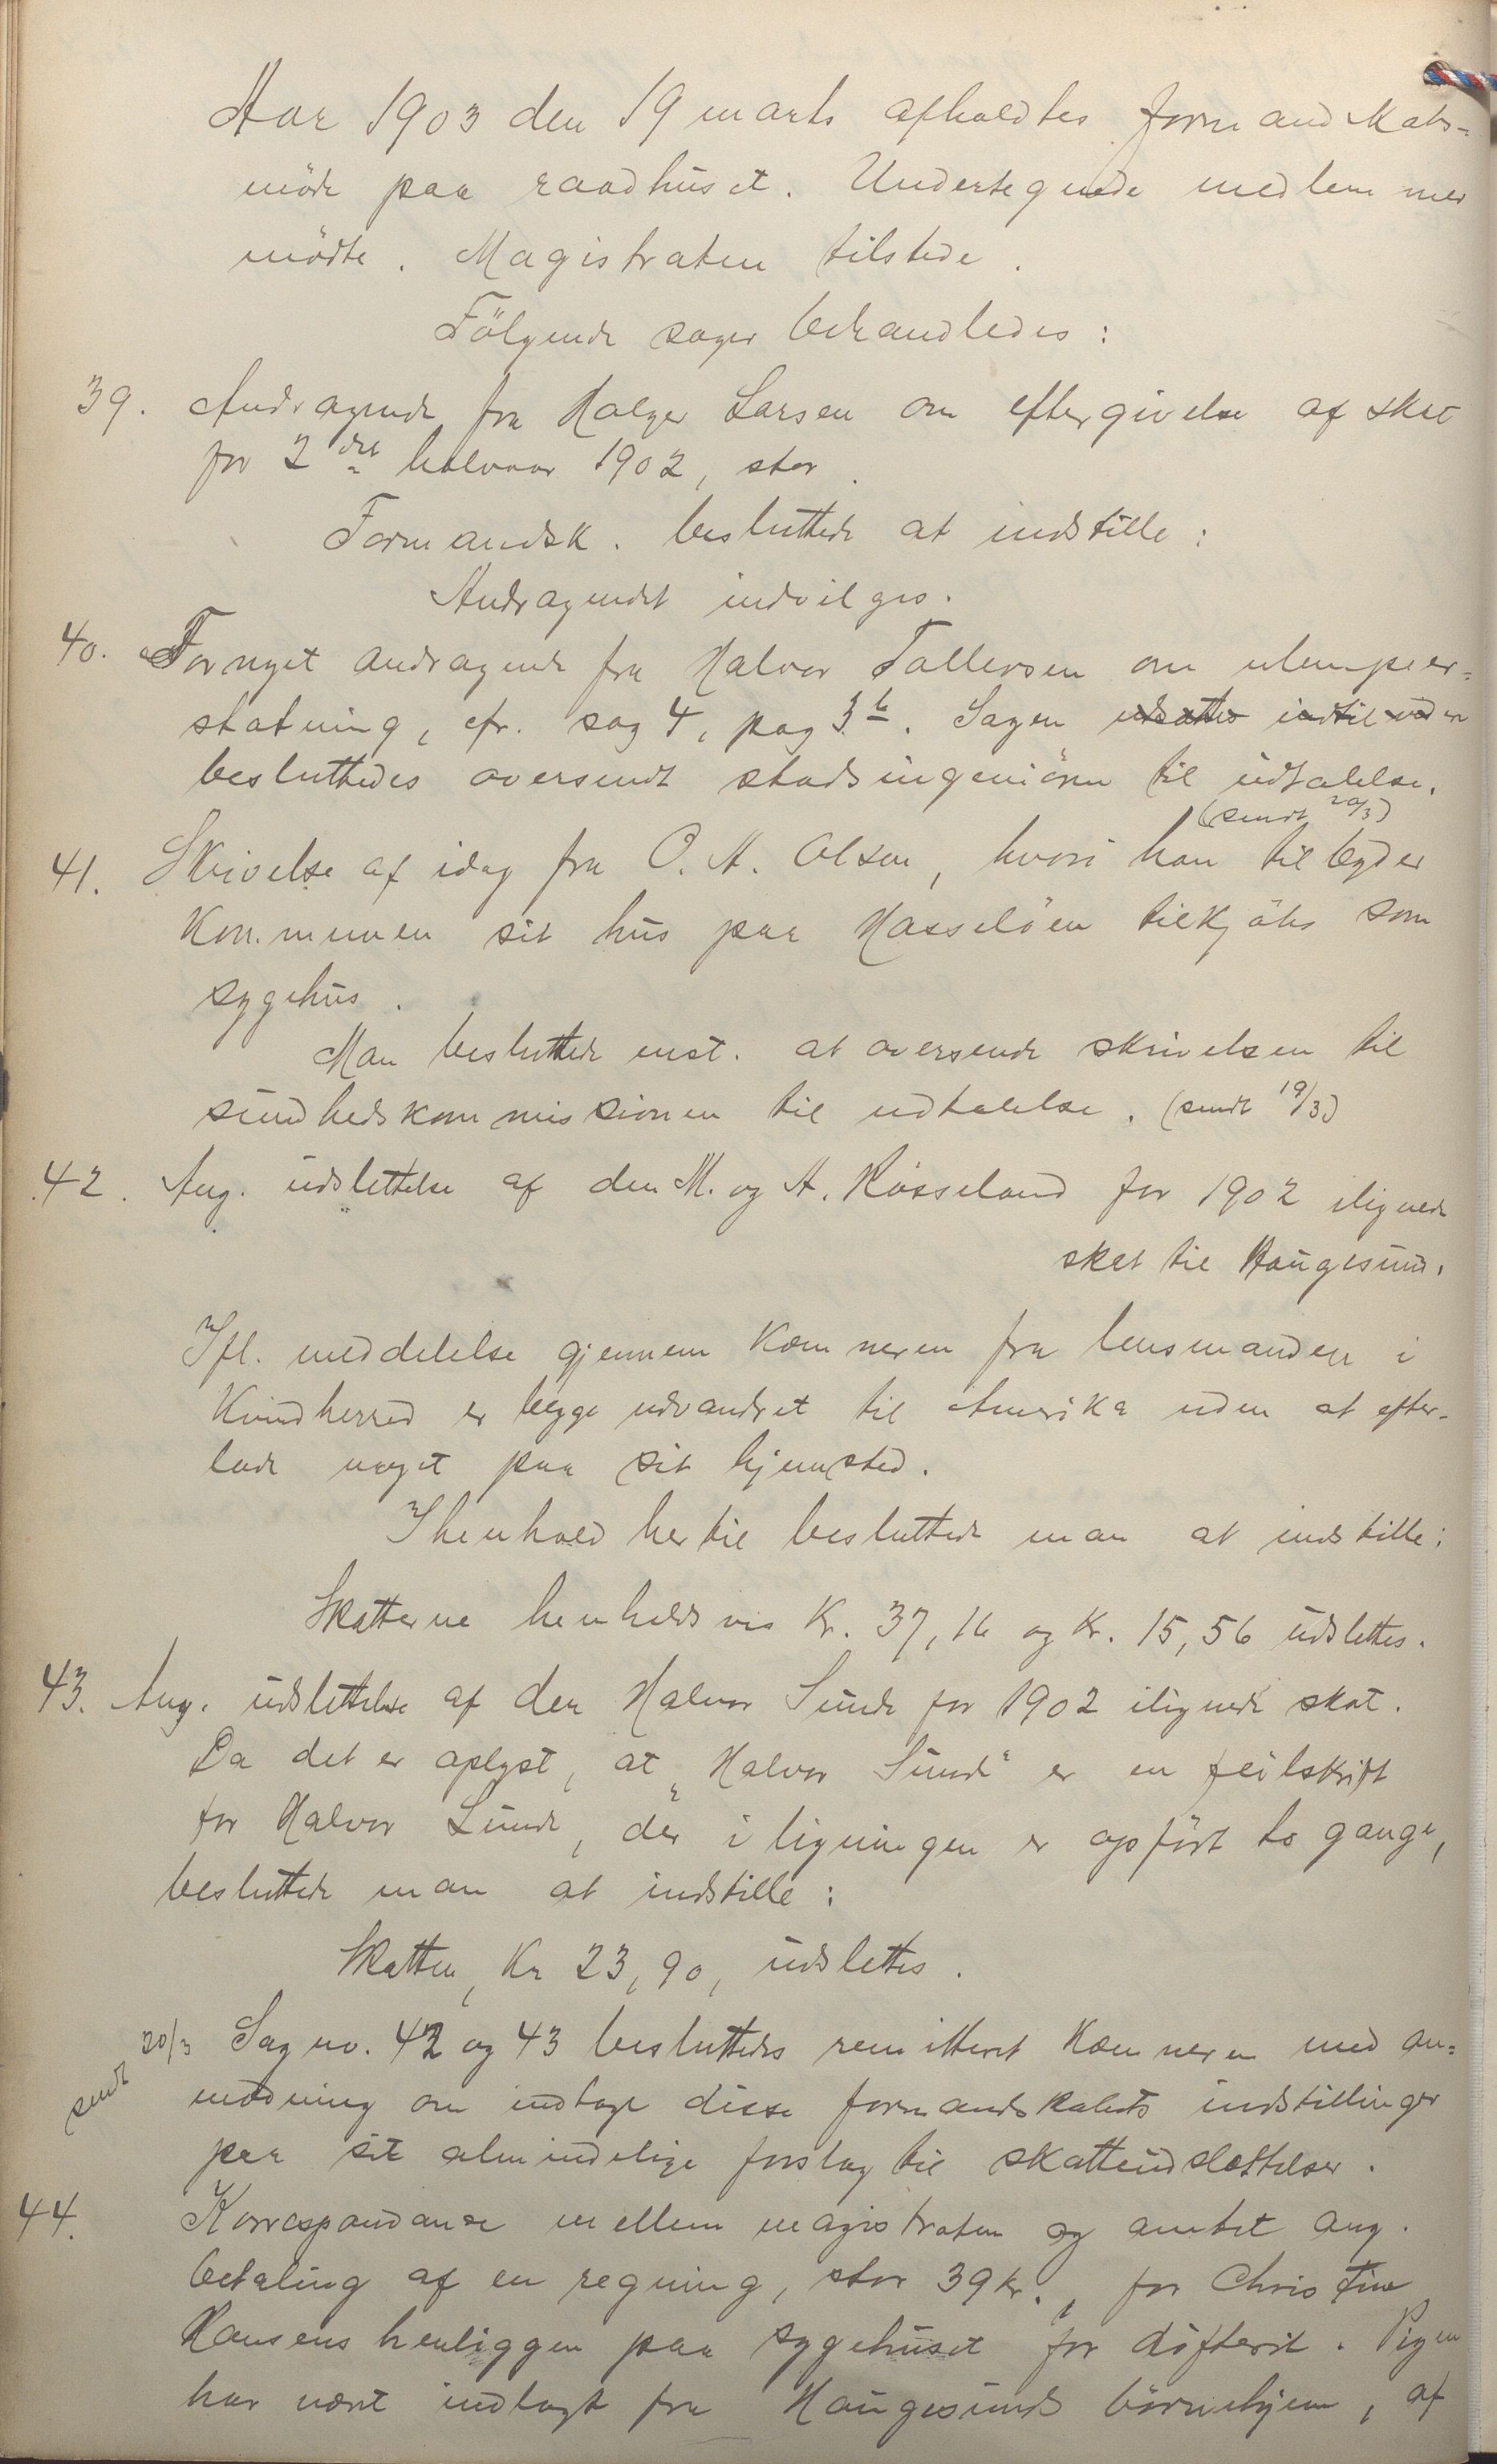 Aar 1903 den 19 marts afholdtes formandskabs-
möde paa raadhuset. Undertegnede medlemmer
mödte. Magistraten tilstede.
Fölgende sager behandledes:
39. Andragende fra Holger Larsen om eftergivelse af skat
for 2det halvaar 1902, stor .
Formandsk. besluttede at indstille:
Andragendet indvilges.
40. Fornyet andragende fra Halvor Tallersen om ulempeer-
statning, cfr. sag 4, pag 3b. Sagen udsattes indtil viden
besluttedes oversendt stadsingeniören til udtalelse.
(sendt 20/3)
41. Skrivelse af idag fra O. A. Olsen, hvori han tilbyder
Kommunen sit hus paa Hasselöen tilkjöbs som
sygehus.
Man besluttede enst. at oversende skrivelsen til
sundhedskommissionen til udtalelse. (sendt 19/3)
42. Ang. udslettelse af den M. og A. Rösseland for 1902 ilignede
skat til Haugesund.
Ifl. meddelelse gjennem Kæmneren fra lensmanden i
Kvindherred er begge udvandret til Amerika uden at efter-
lade noget paa sit hjemsted.
I henhold hertil besluttede man at indstille:
Skatterne henholdsvis Kr. 37,16 og Kr. 15,56 udslettes.
43. Ang. udslettelse af den Halvor Sunde for 1902 ilignede skat.
Da det er oplyst, at „Halvor Sunde" er en feilskrift
for Halvor Lunde, der i ligningen er opfört to gange,
besluttede man at indstille:
Skatten, Kr 23,90, udslettes.
sendt 20/3 Sag no. 42 og 43 besluttedes remitteret Kæmneren med an-
modning om indtage disse formandskabets indstillinger
paa sit almindelige forslag til skatteudslættelser.
44. Korrespondanse mellem magistraten og amtet ang.
betaling af en regning, stor 39 kr., for Christine
Hansens henliggen paa sygehuset for difterit. Pigen
har været indlagt fra Haugesunds börnehjem, af